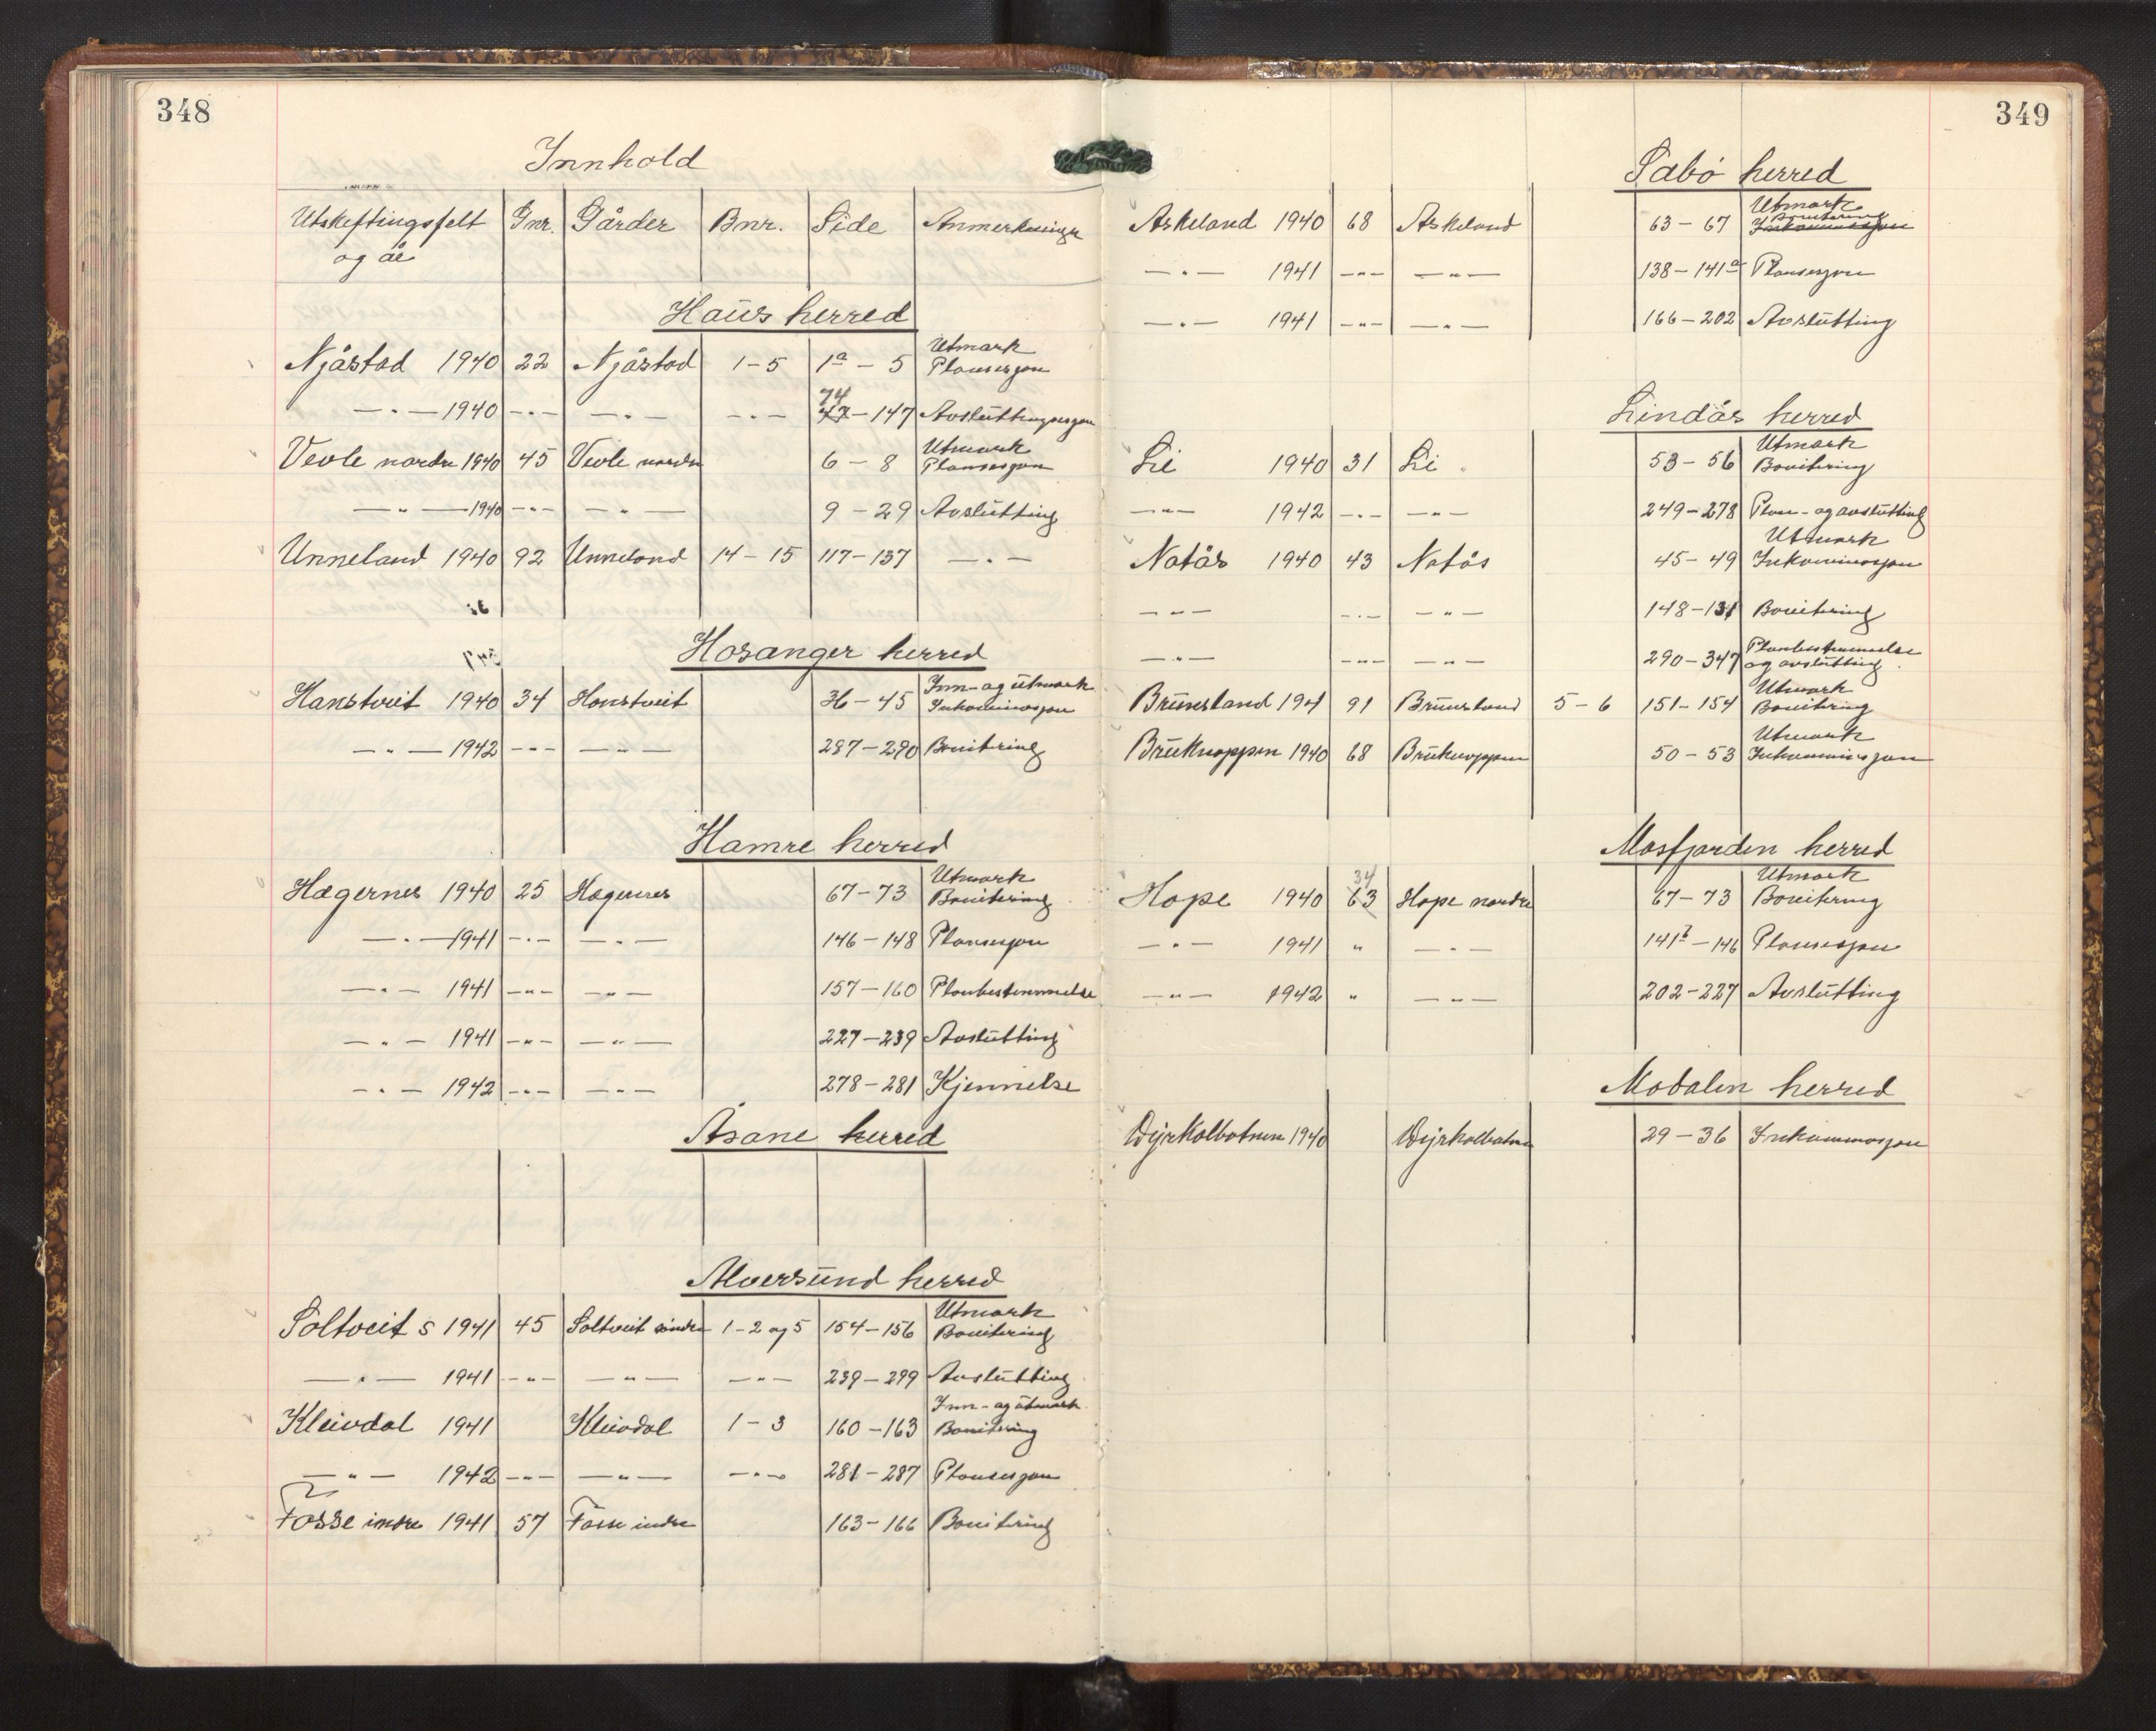 348
Innhold
Utskeftingsfelt og år Gnr. Gårder Bnr. Side Anmerkninger
Haus herred
Njåstad 1940 22 Njåstad 1-5 1a - 5 Utmark Plansesjon
— " — 1940 - " - — " — - " - 74 47 - 147 Avsluttingssesjon
Vevle nordre 1940 45 Vevle nordre 6 - 8 Utmark Plansesjon
— " — 1940 - " - — " — 9 - 29 Avslutting
Unneland 1940 92 Unneland 14 - 15 117-137 — " —
Hosanger herred
Hanstveit 1940 34 Hanstveit 36 - 45 Inn- og utmark Inkaminasjon
— " — 1942 - " - — " — 287-290 Bonitering
Hamre herred
Hægernes 1940 25 Hægernes 67-73 Utmark Bonitering
— " — 1941 - " - — " — 146-148 Plansesjon
— " — 1941 - " - — " — 157-160 Planbestemmelse
— " — 1941 - " - — " — 227-239 Avslutting
— " — 1942 - " - — " — 278-281 Kjennelse
Åsane herred
Alversund herred
Soltveit s 1941 45 Soltveit søndre 1-2 og 5 154-156 Utmark Bonitering
— " — 1941 - " - — " — - " - 239-299 Avslutting
Kleivdal 1941 Kleivdal 1-3 160-163 Inn- og utmark Bonitering
— " — 1942 - " - — " — - " - 281-287 Plansesjon
Fosse indre 1941 57 Fosse indre 163-166 Bonitering
349
Sæbø herred
Askeland 1940 68 Askeland 63-67 Utmark Bonitering
— " — 1941 - " - — " — 138-141a Plansesjon
— " — 1941 - " - — " — 166-202 Avslutting
Lindås herred
Li 1940 31 Li 53-56 Utmark Bonitering
— " — 1942 - " - — " — 249-278 Plan- og avslutting
Natås 1940 43 Natås 45-49 Utmark Inkaminasjon
— " — - " - — " — 148-151 Bonitering
— " — - " - — " — 290-347 Planbestemmelse og avslutting
Brunesland 194 91 Brunesland 5-6 151-154 Utmark Bonitering
Bruknappen 1940 68 Bruknappen 50-53 Utmark Inkaminasjon
Masfjorden herred
Hope 1940 34 63 Hope nordre 67-73 Utmark Bonitering
— " — 1941 " — " — 141b-146 Plansesjon
— " — 1942 " — " — 202-227 Avslutting
Modalen herred
Dyrkolbotnen 1940 Dyrkolbotnen 29-36 Inkaminasjon